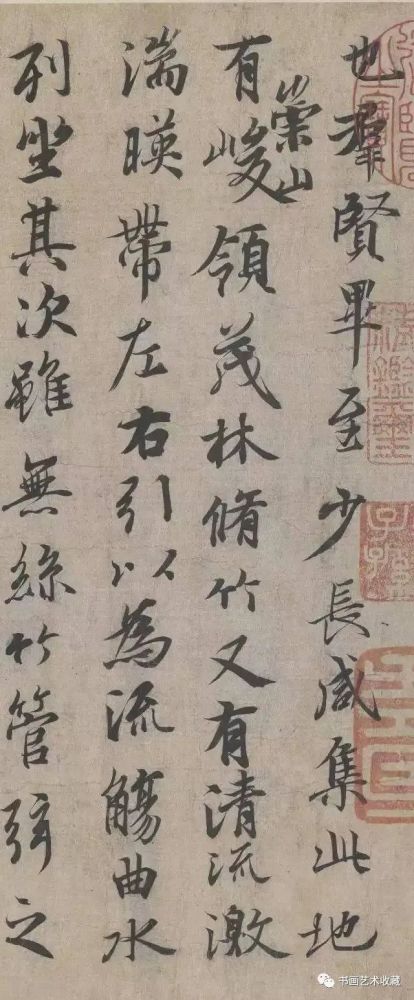 也羣賢畢至少長咸集此地
有崇山峻領茂林脩竹又有清流激
湍暎帶左右引以為流觴曲水
列坐其次雖無絲竹管弦之
书画艺术收藏